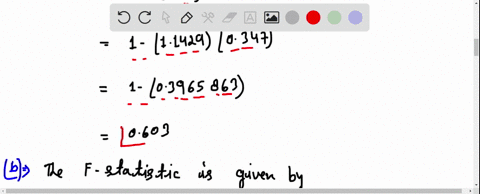 = 1 - (1.1429) (0.347)
= 1 - (0.3965863)
= 0.603
(b)⇒ The F-statistic is given by